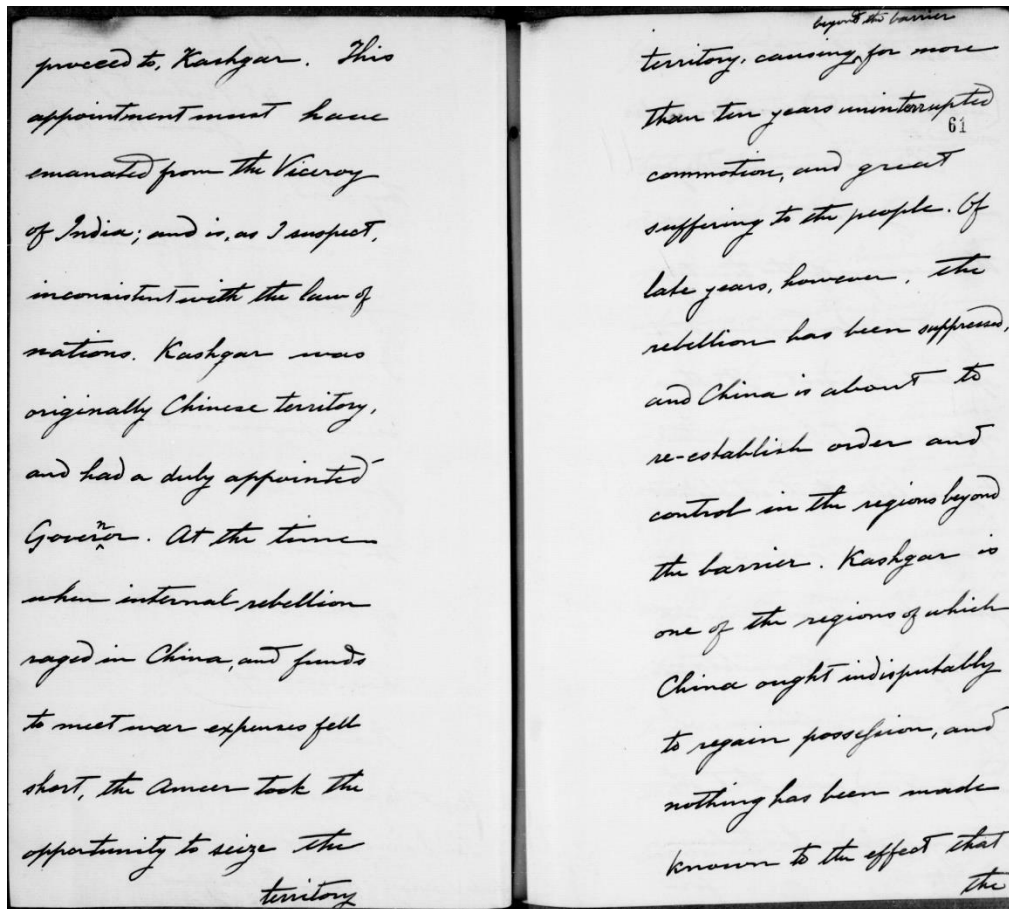 proceed to, Kashgar. This
appointment must have
emanated from the Viceroy
of India; and is, as I suspect,
inconsistent with the law of
nations. Kashgar was
originally Chinese territory,
and had a duly appointed
Governor. At the time
when internal rebellion
raged in China, and funds
to meet war expenses fell
short, the Ameer took the
opportunity to seize the
territory
beyond the barrier
territory, causing, for more
than ten years uninterrupted
61
commotion, and great
suffering to the people. Of
late years, however, the
rebellion has been suppressed,
and China is about to
re-establish order and
control in the regions beyond
the barrier. Kashgar is
one of the regions of which
China ought indisputably
to regain possession, and
nothing has been made
known to the effect that
the